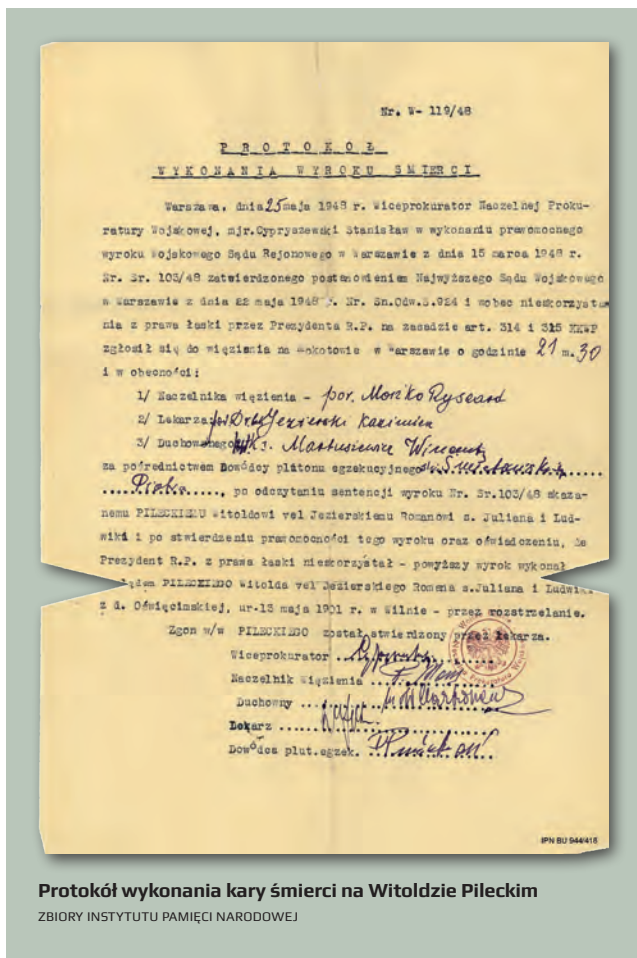 Nr. W- 119/48
P R O T O K Ó Ł
W Y K O N A N I A  W Y R O K U  Ś M I E R C I
Warszawa, dnia 25 maja 1948 r. Wiceprokurator Naczelnej Proku-
ratury Wojskowej, mjr.Cypryszewski Stanisław w wykonaniu prawomocnego
wyroku Wojskowego Sądu Rejonowego w Warszawie z dnia 15 marca 1948 r.
Nr. Sr. 103/48 zatwierdzonego postanowieniem Najwyższego Sądu Wojskowego
w Warszawie z dnia 22 maja 1948 r. Nr. Sn.Odw.S.924 i wobec nieskorzysta
nia z prawa łaski przez Prezydenta R.P. na zasadzie art. 314 i 315 KKWP
zgłosił się do więzienia na Mokotowie w Warszawie o godzinie 21 m. 30
i w obecności:
1/ Naczelnika więzienia - por. Mońko Ryszard
2/ Lekarza Dr Jezierski Kazimierz
3/ Duchownego Ks. Martusiewicz Wincenty
za pośrednictwem Dowódcy plutonu egzekucyjnego Śmietański.....
.....Piotra....., po odczytaniu sentencji wyroku Nr. Sr.103/48 skaza-
nemu PILECKIEMU Witoldowi vel Jezierskiemu Romanowi s. Juliana i Lud-
wiki i po stwierdzeniu prawomocności tego wyroku oraz oświadczeniu, że
Prezydent R.P. z prawa łaski nieskorzystał - powyższy wyrok wykonał
względem PILECKIEGO Witolda vel Jezierskiego Romana s.Juliana i Ludwiki
z d. Oświęcimskiej, ur-13 maja 1901 r. w Wilnie - przez rozstrzelanie.
Zgon w/w PILECKIEGO został stwierdzony przez lekarza.
Wiceprokurator
Naczelnik więzienia
Duchowny
Lekarz
Dowódca plut.egzek.
IPN BU 944/416
Protokół wykonania kary śmierci na Witoldzie Pileckim
ZBIORY INSTYTUTU PAMIĘCI NARODOWEJ